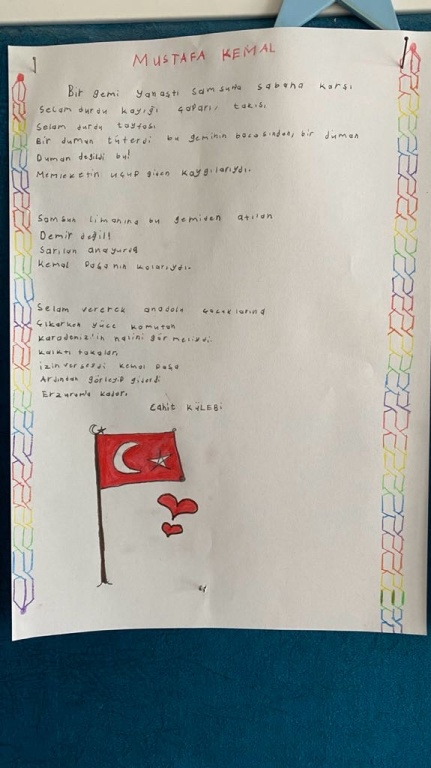 MUSTAFA KEMAL
Bir gemi yanaştı Samsuna sabaha karşı
Selam durdu kayığı çaparı, takası
Selam durdu tayfası
Bir duman tüterdi bu geminin bacasından, bir duman
Duman değildi bu!
Memleketin uçup giden kaygılarıydı.
Samsun limanına bu gemiden atılan
Demir değil!
Sarılan anayurda
Kemal Paşanın kollarıydı.
Selam vererek anadolu çocuklarına
Çıkarken yüce komutan
Karadeniz'in halini görmeliydi.
Kalktı takalar,
izin verseydi Kemal Paşa
Ardından gürleyip giderdi
Erzurum'a kadar.
Cahit KÜLEBİ